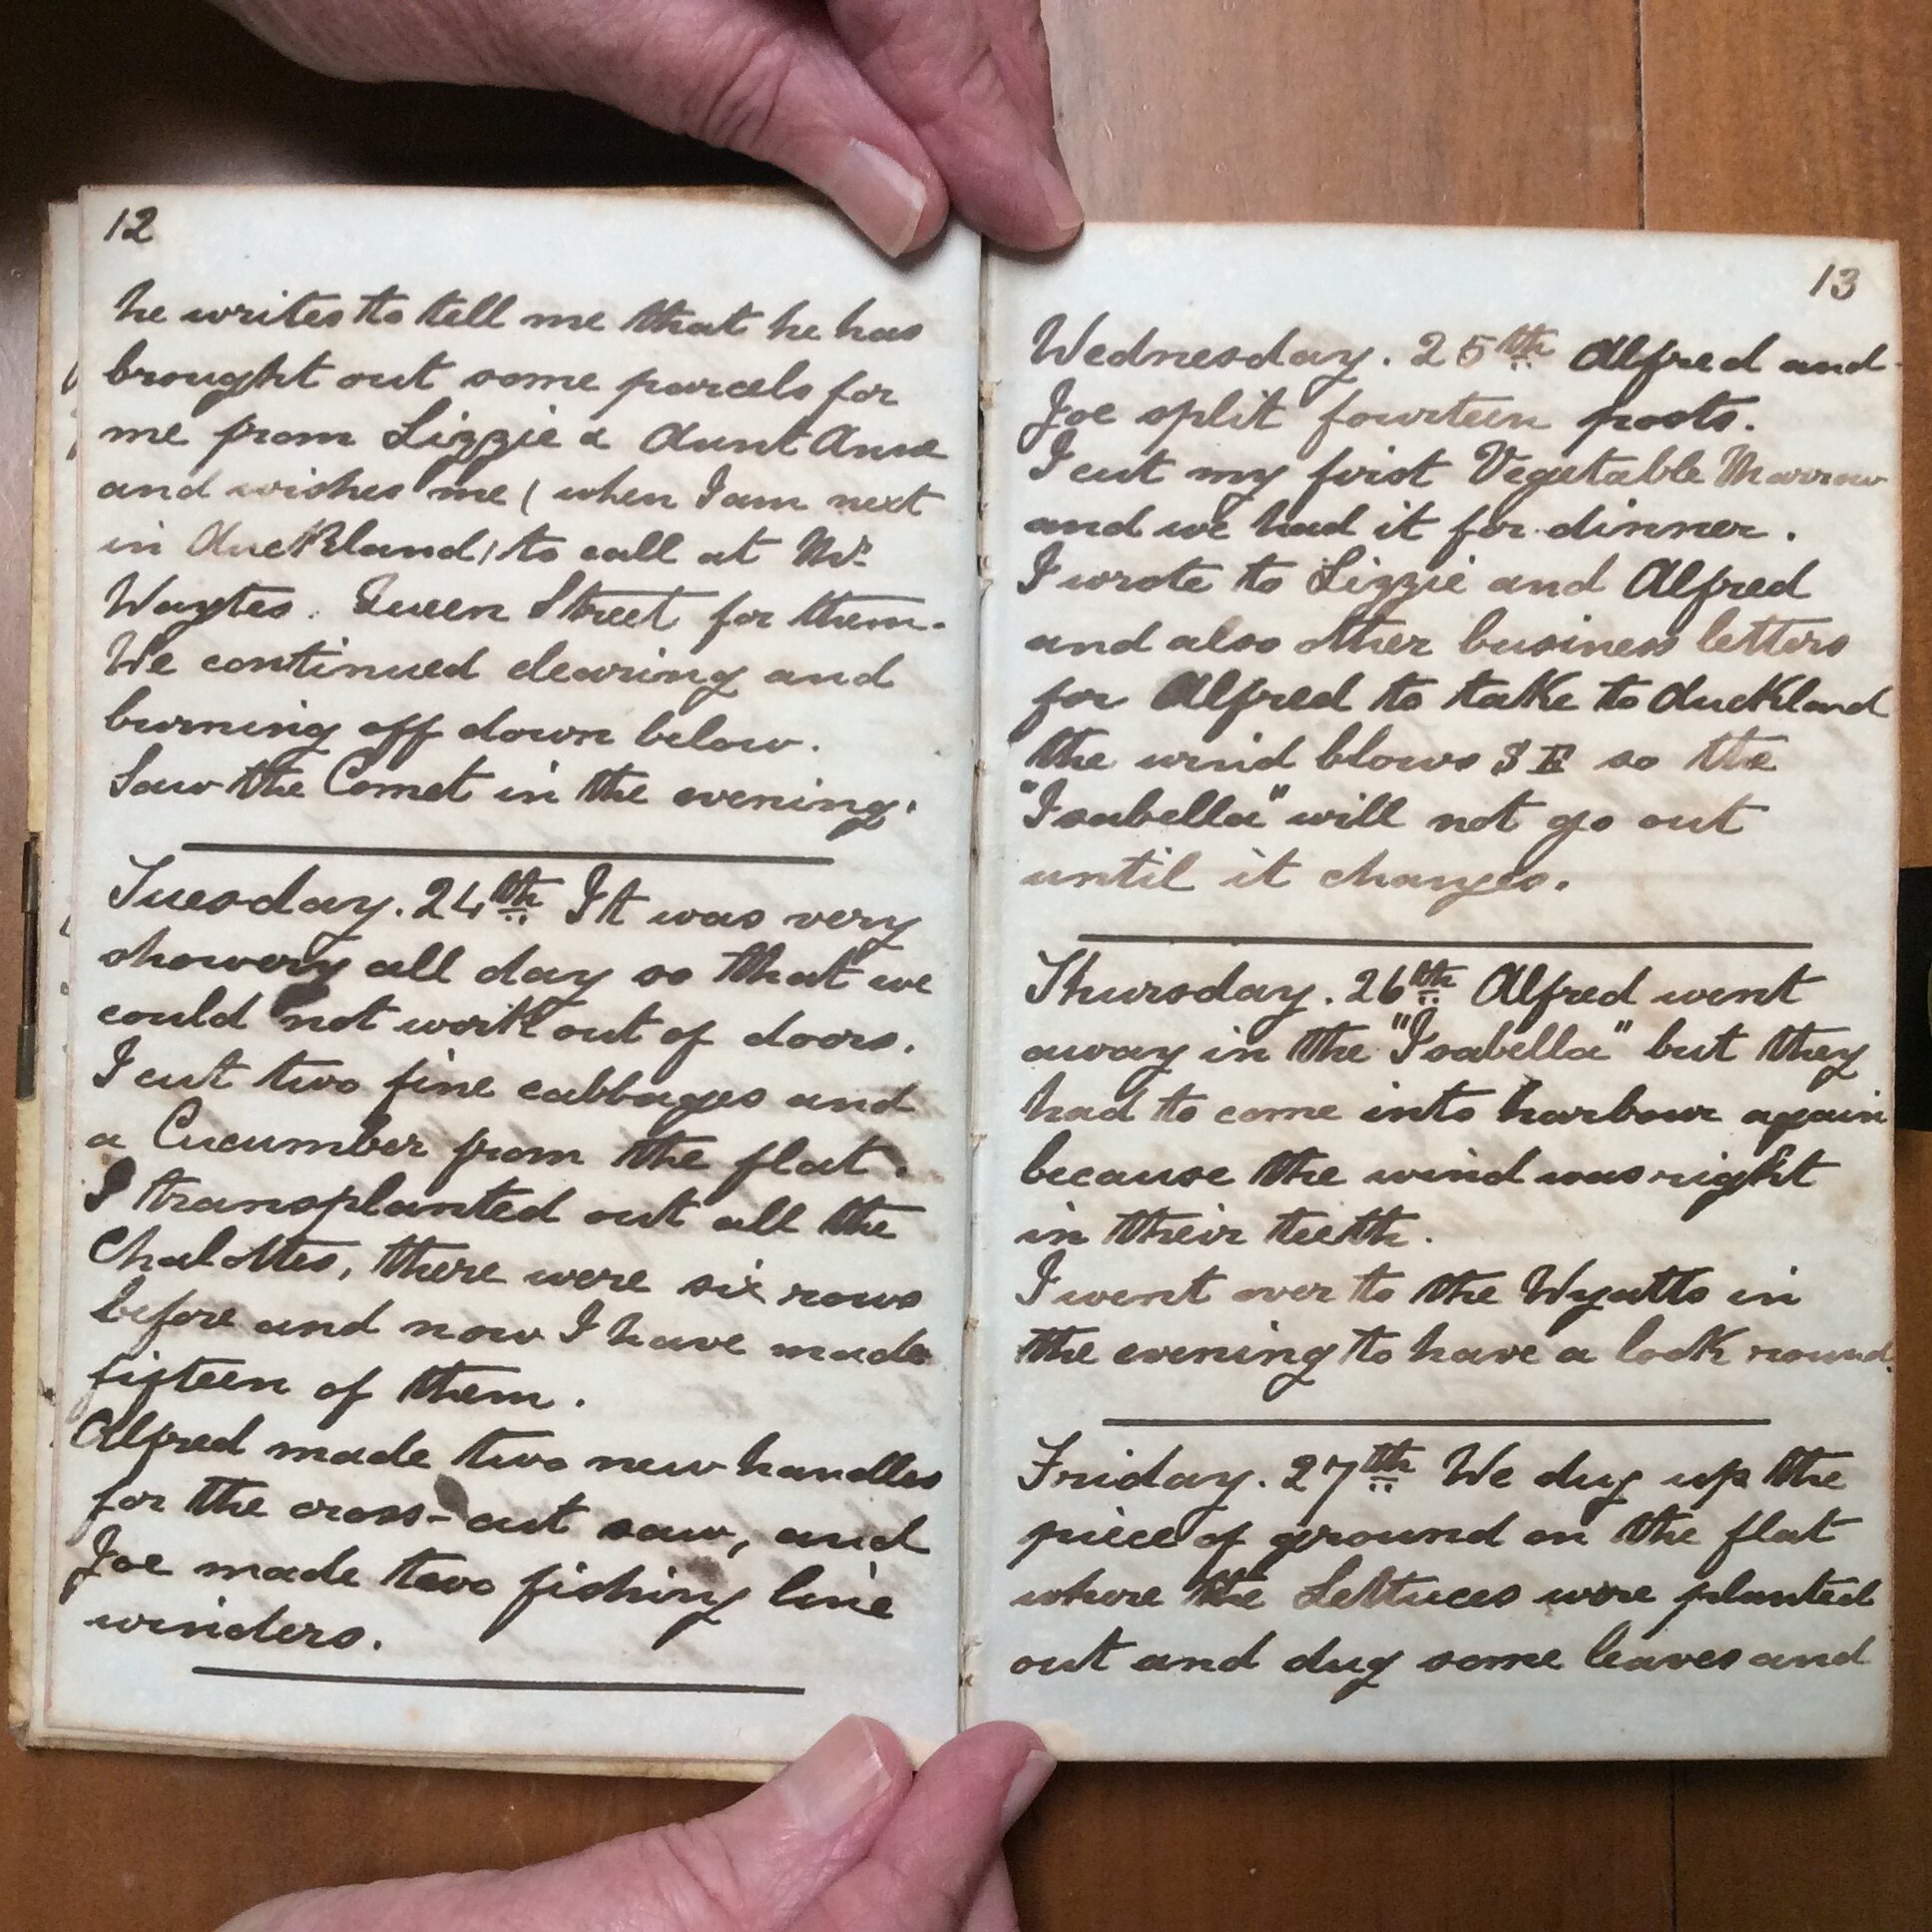 12
he writes to tell me that he has
brought out some parcels for
me from Lizzie & Aunt Anne
and wishes me (when I am next
in Auckland) to call at Mr.
Waytes. Queen Street for them.
We continued clearing and
burning off down below.
Saw the Comet in the evening.
Tuesday. 24th It was very
showery all day so that we
could not work out of doors.
I cut two fine cabbages and
a Cucumber from the flat.
I transplanted out all the
Chalottes, there were six rows
before and now I have made
fifteen of them.
Alfred made two new handles
for the cross-cut saw, and
Joe made two fishing line
winders.
13
Wednesday. 25th Alfred and
Joe split fourteen posts.
I cut my first Vegetable Marrow
and we had it for dinner.
I wrote to Lizzie and Alfred
and also other business letters
for Alfred to take to Auckland
the wind blows S E so the
"Isabella" will not go out
until it changes.
Thursday. 26th Alfred went
away in the "Isabella" but they
had to come into harbour again
because the wind was right
in their teeth.
I went over to the Wyatts in
the evening to have a look round.
Friday. 27th We dug up the
piece of ground on the flat
where the Lettuces were planted
out and dug some leaves and